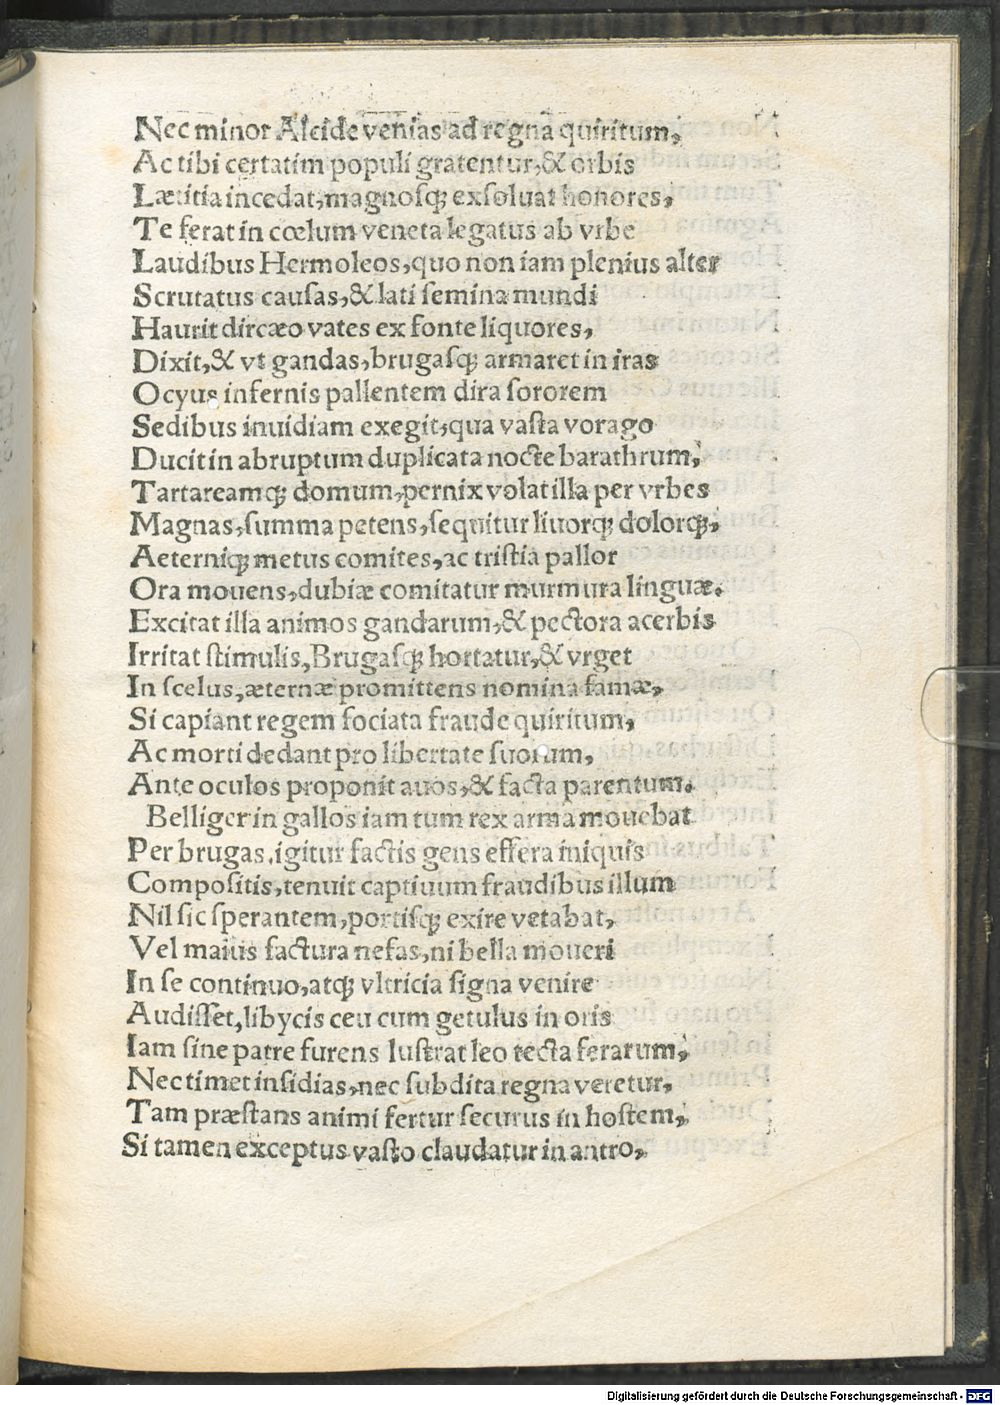 Nec minor Alcide venias ad regna quiritum,
Ac tibi certatim populi gratentur, & orbis
Lætitia incedat, magnosq; exsoluat honores,
Te ferat in cœlum veneta legatus ab vrbe
Laudibus Hermoleos, quo non iam plenius alter
Scrutatus causas, & lati semina mundi
Haurit dircæo vates ex fonte liquores,
Dixit, & vt gandas, brugasq; armaret in iras
Ocyus infernis pallentem dira sororem
Sedibus inuidiam exegit, qua vasta vorago
Ducit in abruptum duplicata nocte barathrum,
Tartareamq; domum, pernix volat illa per vrbes
Magnas, summa petens, sequitur liuorq; dolorq;,
Aeterniq; metus comites, ac tristia pallor
Ora mouens, dubiæ comitatur murmura linguæ.
Excitat illa animos gandarum, & pectora acerbis
Irritat stimulis, Brugasq; hortatur, & vrget
In scelus, æternæ promittens nomina famæ,
Si capiant regem sociata fraude quiritum,
Ac morti dedant pro libertate suorum,
Ante oculos proponit auos, & facta parentum.
Belliger in gallos iam tum rex arma mouebat
Per brugas, igitur factis gens effera iniquis
Compositis, tenuit captiuum fraudibus illum
Nil sic sperantem, portisq; exire vetabat,
Vel maius factura nefas, ni bella moueri
In se continuo, atq; vltricia signa venire
Audisset, libycis ceu cum getulus in oris
Iam sine patre furens lustrat leo tecta ferarum,
Nec timet insidias, nec subdita regna veretur,
Tam præstans animi fertur securus in hostem,
Si tamen exceptus vasto claudatur in antro,
Digitalisierung gefördert durch die Deutsche Forschungsgemeinschaft - DFG